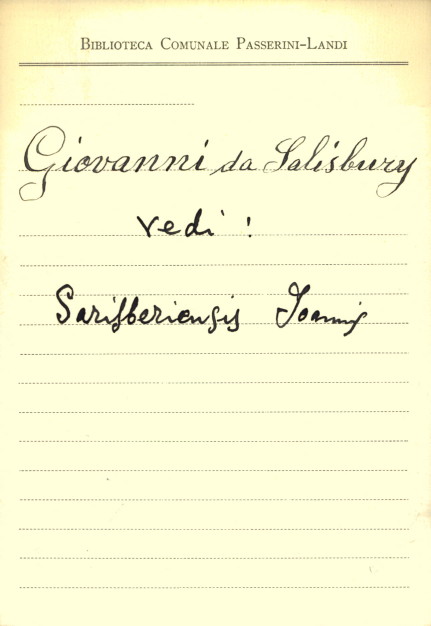 BIBLIOTECA COMUNALE PASSERINI-LANDI
Giovanni da Salisbury
vedi!
Sarisberiensis Joannis